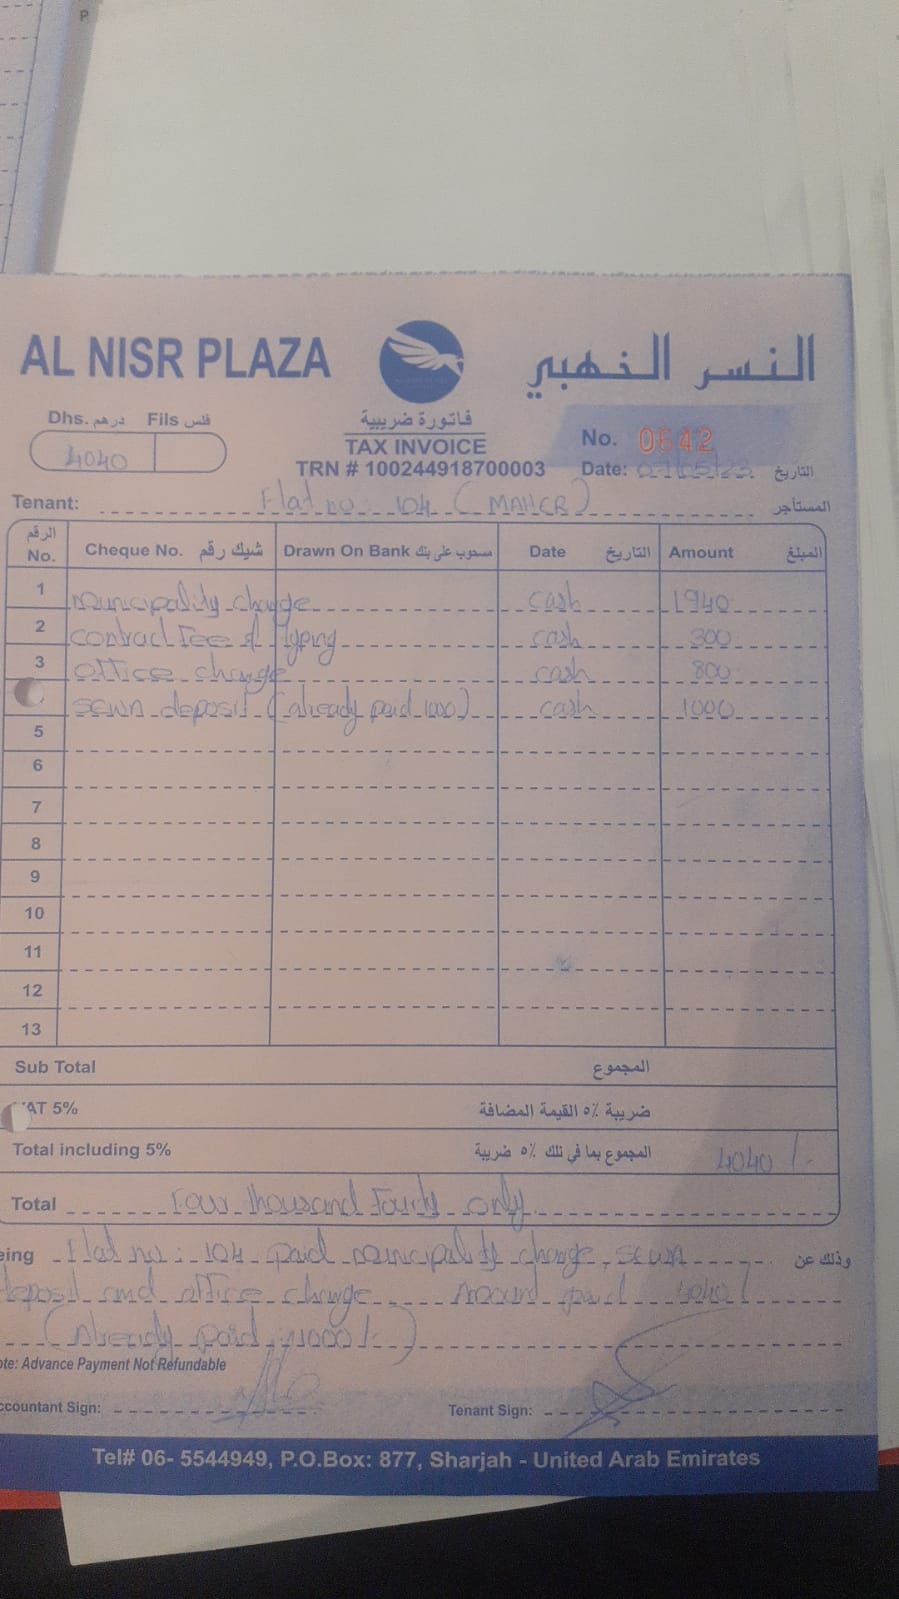 P
AL NISR PLAZA النسر الذهبي
Dhs. درهم Fils فلس
4040
فاتورة ضريبية
TAX INVOICE
TRN # 100244918700003
No. 0642
Date: التاريخ
Tenant: Flat no: 104 (MAHER) المستأجر
الرقم No. Cheque No. شيك رقم Drawn On Bank مسحوب على بنك Date التاريخ Amount المبلغ
1 municipality charge cash 1940
2 contract Fee & typing cash 300
3 office charge cash 800
sewa deposit (already paid 1000) cash 1000
5
6
7
8
9
10
11
12
13
Sub Total المجموع
VAT 5% ضريبة ٥٪ القيمة المضافة
Total including 5% المجموع بما في ذلك ٥٪ ضريبة 4040/-
Total Four thousand Fourty only
eing Flat no: 104 paid municipality charge, sewa وذلك عن
deposit and office charge Amount paid 4040/
(Already paid 1000/-)
ote: Advance Payment Not Refundable
ccountant Sign: Tenant Sign:
Tel# 06- 5544949, P.O.Box: 877, Sharjah - United Arab Emirates